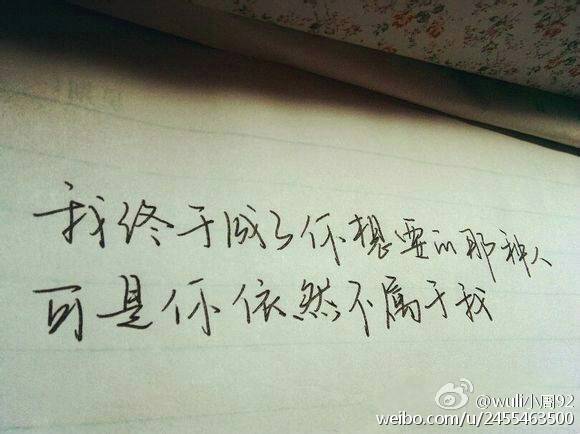 我终于成了你想要的那种人
可是你依然不属于我
@wuli小周92
weibo.com/u/2455463500